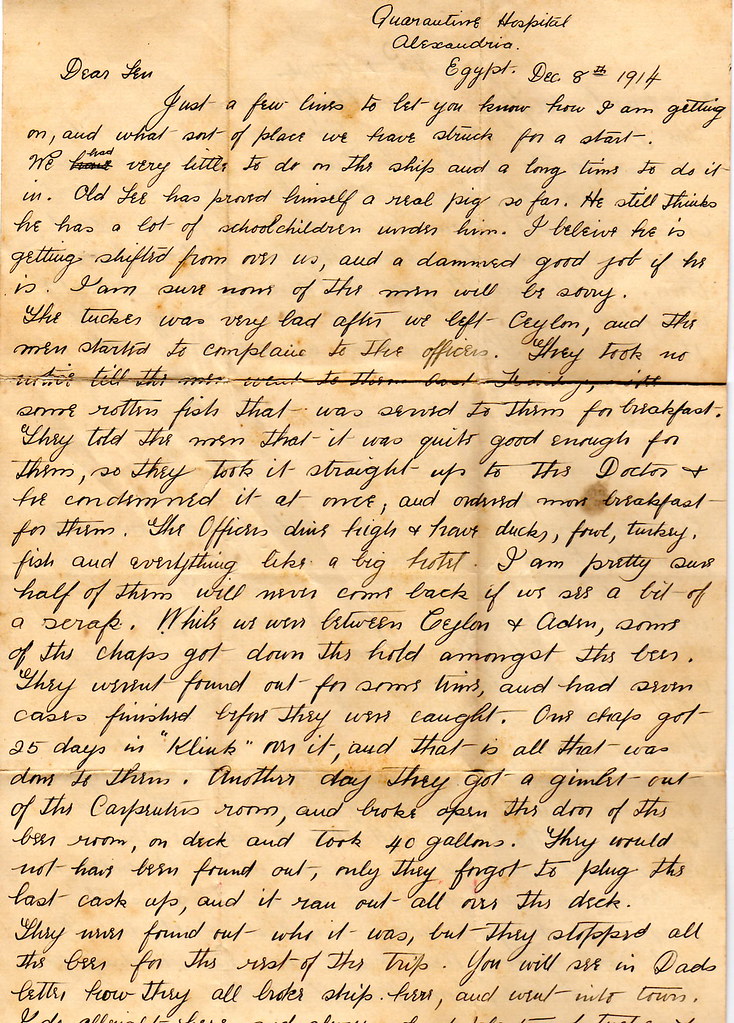 Quarantine Hospital
Alexandria.
Egypt. Dec. 8th 1914
Dear Len
Just a few lines to let you know how I am getting
on, and what sort of place we have struck for a start.
We had very little to do on the ship and a long time to do it
in. Old Lee has proved himself a real pig so far. He still thinks
he has a lot of schoolchildren under him. I beleive he is
getting shifted from over us, and a dammed good job if he
is. I am sure none of the men will be sorry.
The tucker was very bad after we left Ceylon, and the
men started to complain to the officers. They took no
notice till the men went to them
some rotten fish that was served to them for breakfast.
They told the men that it was quite good enough for
them, so they took it straight up to the Doctor &
he condemned it at once, and ordered more breakfast
for them. The Officers dine high & have ducks, fowl, turkey,
fish and everything like a big hotel. I am pretty sure
half of them will never come back if we see a bit of
a scrap. While we were between Ceylon & Aden, some
of the chaps got down the hold amongst the beer.
They werent found out for some time, and had seven
cases finished before they were caught. One chap got
25 days in "Klink" over it, and that is all that was
done to them. Another day they got a gimlet out
of the Carpenters room, and broke open the door of the
beer room, on deck and took 40 gallons. They would
not have been found out, only they forgot to plug the
last cask up, and it ran out all over the deck.
They never found out who it was, but they stopped all
the beer for the rest of the trip. You will see in Dads
letter how they all broke ship here, and went into town.